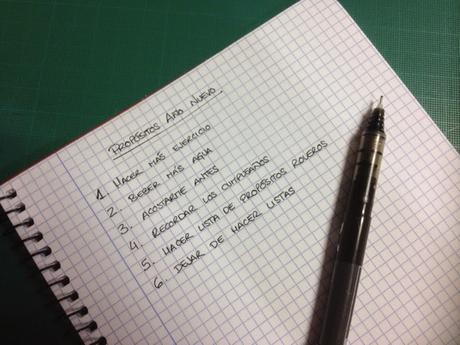 PROPÓSITOS AÑO NUEVO.
1. HACER MÁS EJERCICIO
2. BEBER MÁS AGUA
3. ACOSTARME ANTES
4. RECORDAR LOS CUMPLEAÑOS
5. HACER LISTA DE PROPÓSITOS ROVEROS
6. DEJAR DE HACER LISTAS